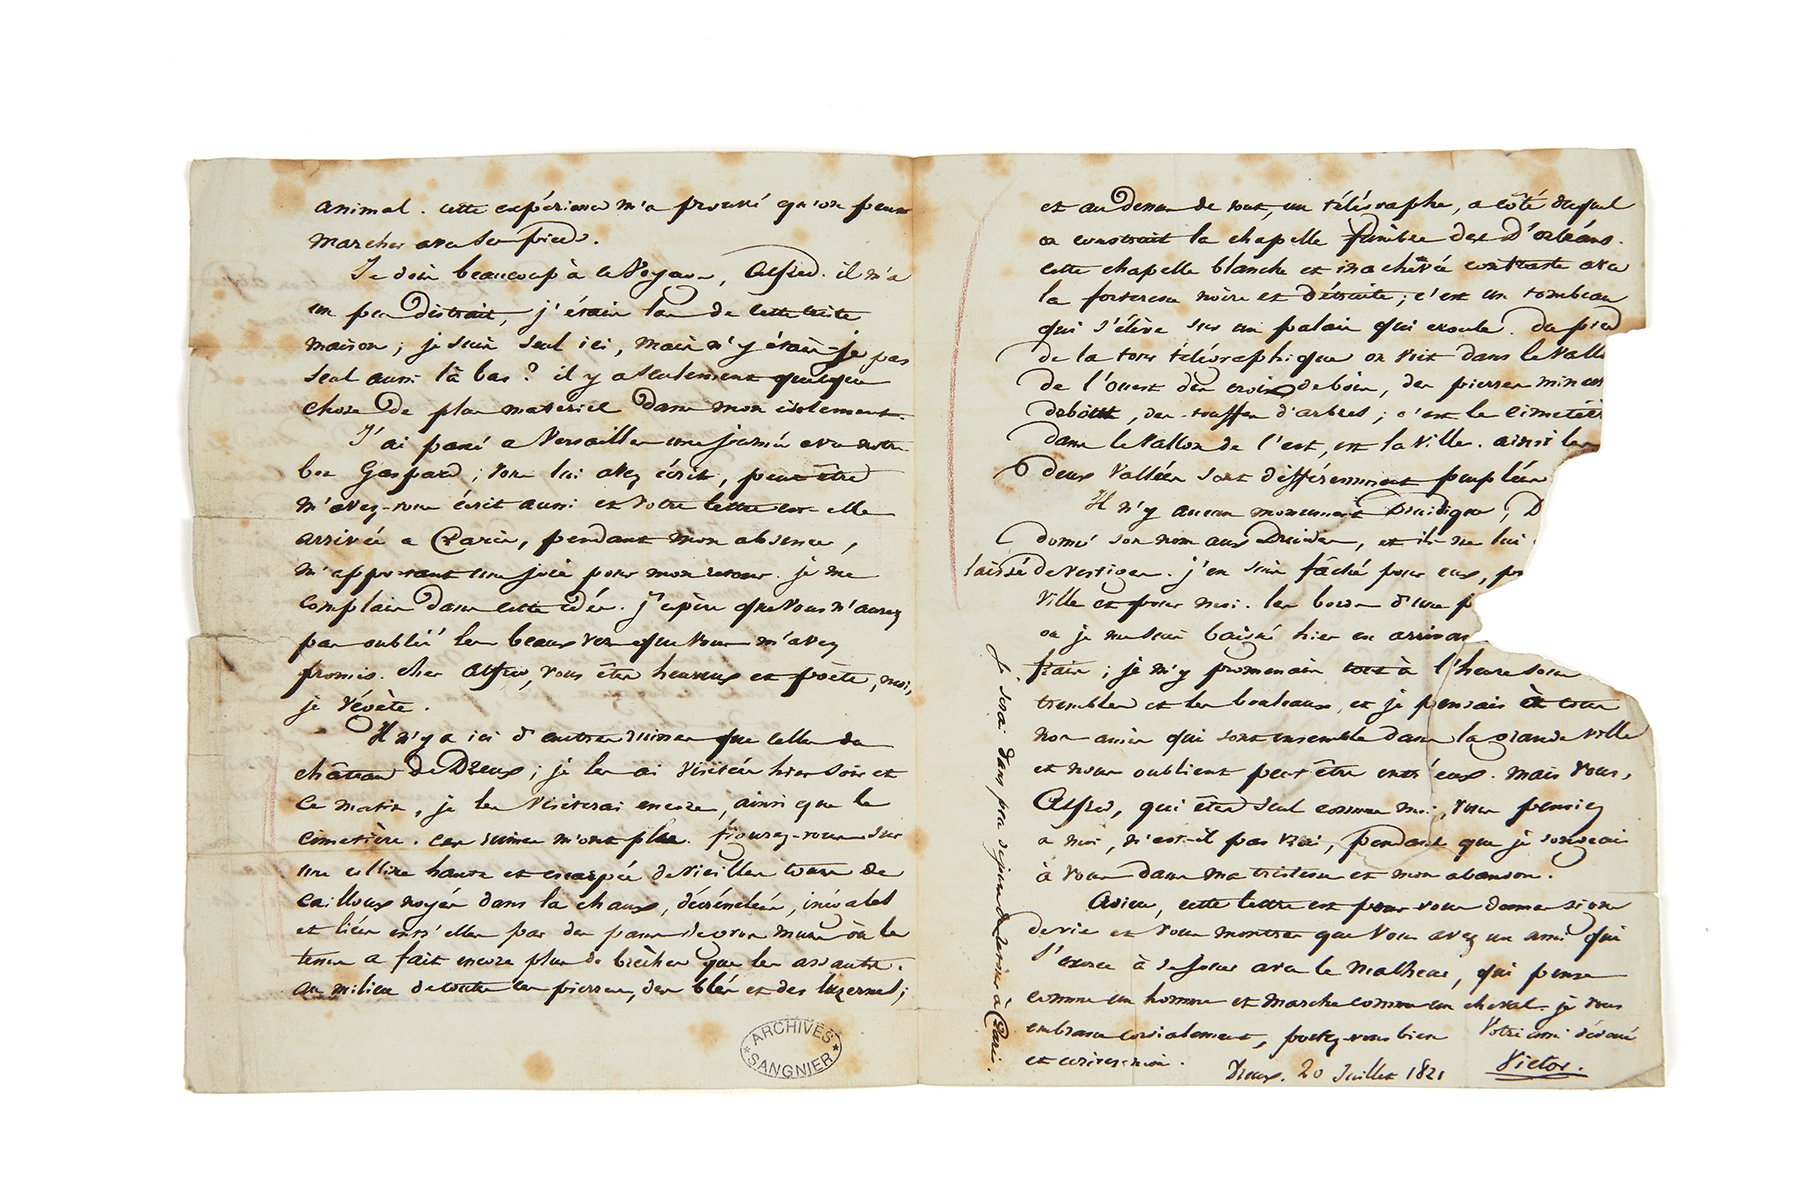 animal. cette expérience m'a prouvé qu'on peut
marcher avec ses pieds.
Je dois beaucoup à ce voyage, Alfred. il m'a
un peu distrait, j'étais las de cette triste
maison ; je suis seul ici, mais n'y étais-je pas
seul aussi là bas ? il y a seulement quelque
chose de plus matériel dans mon isolement.
J'ai passé à Versailles une journée avec notre
bon Gaspard ; vous lui avez écrit, peut-être
m'avez-vous écrit aussi et votre lettre est-elle
arrivée à Paris, pendant mon absence,
m'apportant une joie pour mon retour. je me
complais dans cette idée. j'espère que vous n'aurez
pas oublié les beaux vers que vous m'avez
promis. cher Alfred, vous êtes heureux et poète, moi,
je végète.
Il n'y a ici d'autres ruines que celles du
château de Dreux ; je les ai visitées hier soir et
ce matin, je les visiterai encore, ainsi que le
cimetière. ces ruines m'ont plu. figurez-vous sur
une colline haute et escarpée de vieilles tours de
cailloux noyés dans la chaux, décrénelées, inégales
et liées entr'elles par des pans de gros murs où le
tems a fait encore plus de brèches que les assauts.
au milieu de toutes ces pierres, des blés et des luzernes ;
ARCHIVES
SANGNIER
et au dessus de tout, un télégraphe, à côté duquel
on construit la chapelle funèbre des D'orléans.
cette chapelle blanche et inachevée contraste avec
la forteresse noire et détruite ; c'est un tombeau
qui s'élève sur un palais qui croule. du pied
de la tour télégraphique on voit dans le vall
de l'ouest des croix de bois, des pierres mises
debout, des touffes d'arbres ; c'est le cimetiè
dans le vallon de l'est, est la ville. ainsi les
deux vallées sont différemment peuplées
Il n'y aucun monument Druidique ; D
donné son nom aux Druides, et ils ne lui
laissé de vestiges. j'en suis fâché pour eux, po
ville et pour moi. les bords d'une
où je me suis baigné hier en arrivant
frais ; je m'y promenais tout à l'heure sous
trembles et les bouleaux, et je pensais à tous
nos amis qui sont ensemble dans la grande ville
et nous oublient peut être entr'eux. mais vous,
Alfred, qui êtes seul comme moi, vous pensiez
à moi, n'est-il pas vrai, pendant que je songeais
à vous dans ma tristesse et mon abandon.
Adieu, cette lettre est pour vous donner signe
de vie et vous montrer que vous avez un ami qui
s'exerce à se jouer avec le malheur, qui pense
comme un homme et marche comme un cheval. je vous
embrasse cordialement, portez-vous bien
et écrivez-moi.
Votre ami dévoué
Victor.
Dreux. 20 Juillet 1821
Je serai dans peu de jours de retour à Paris.